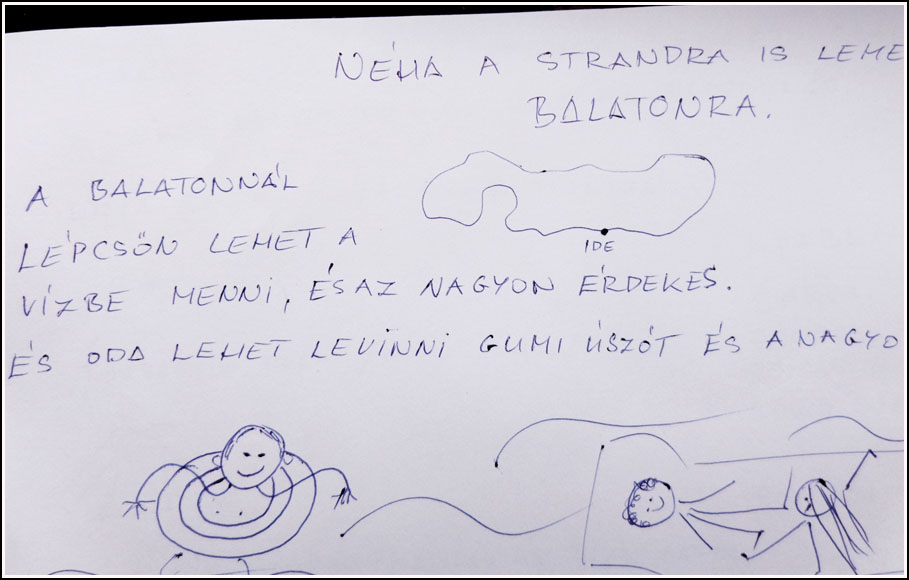 NÉHA A STRANDRA IS LEME
BALATONRA.
A BALATONNÁL
LÉPCSŐN LEHET A
IDE
VÍZBE MENNI, ÉS AZ NAGYON ÉRDEKES.
ÉS ODA LEHET LEVINNI GUMI ÚSZÓT ÉS A NAGYO